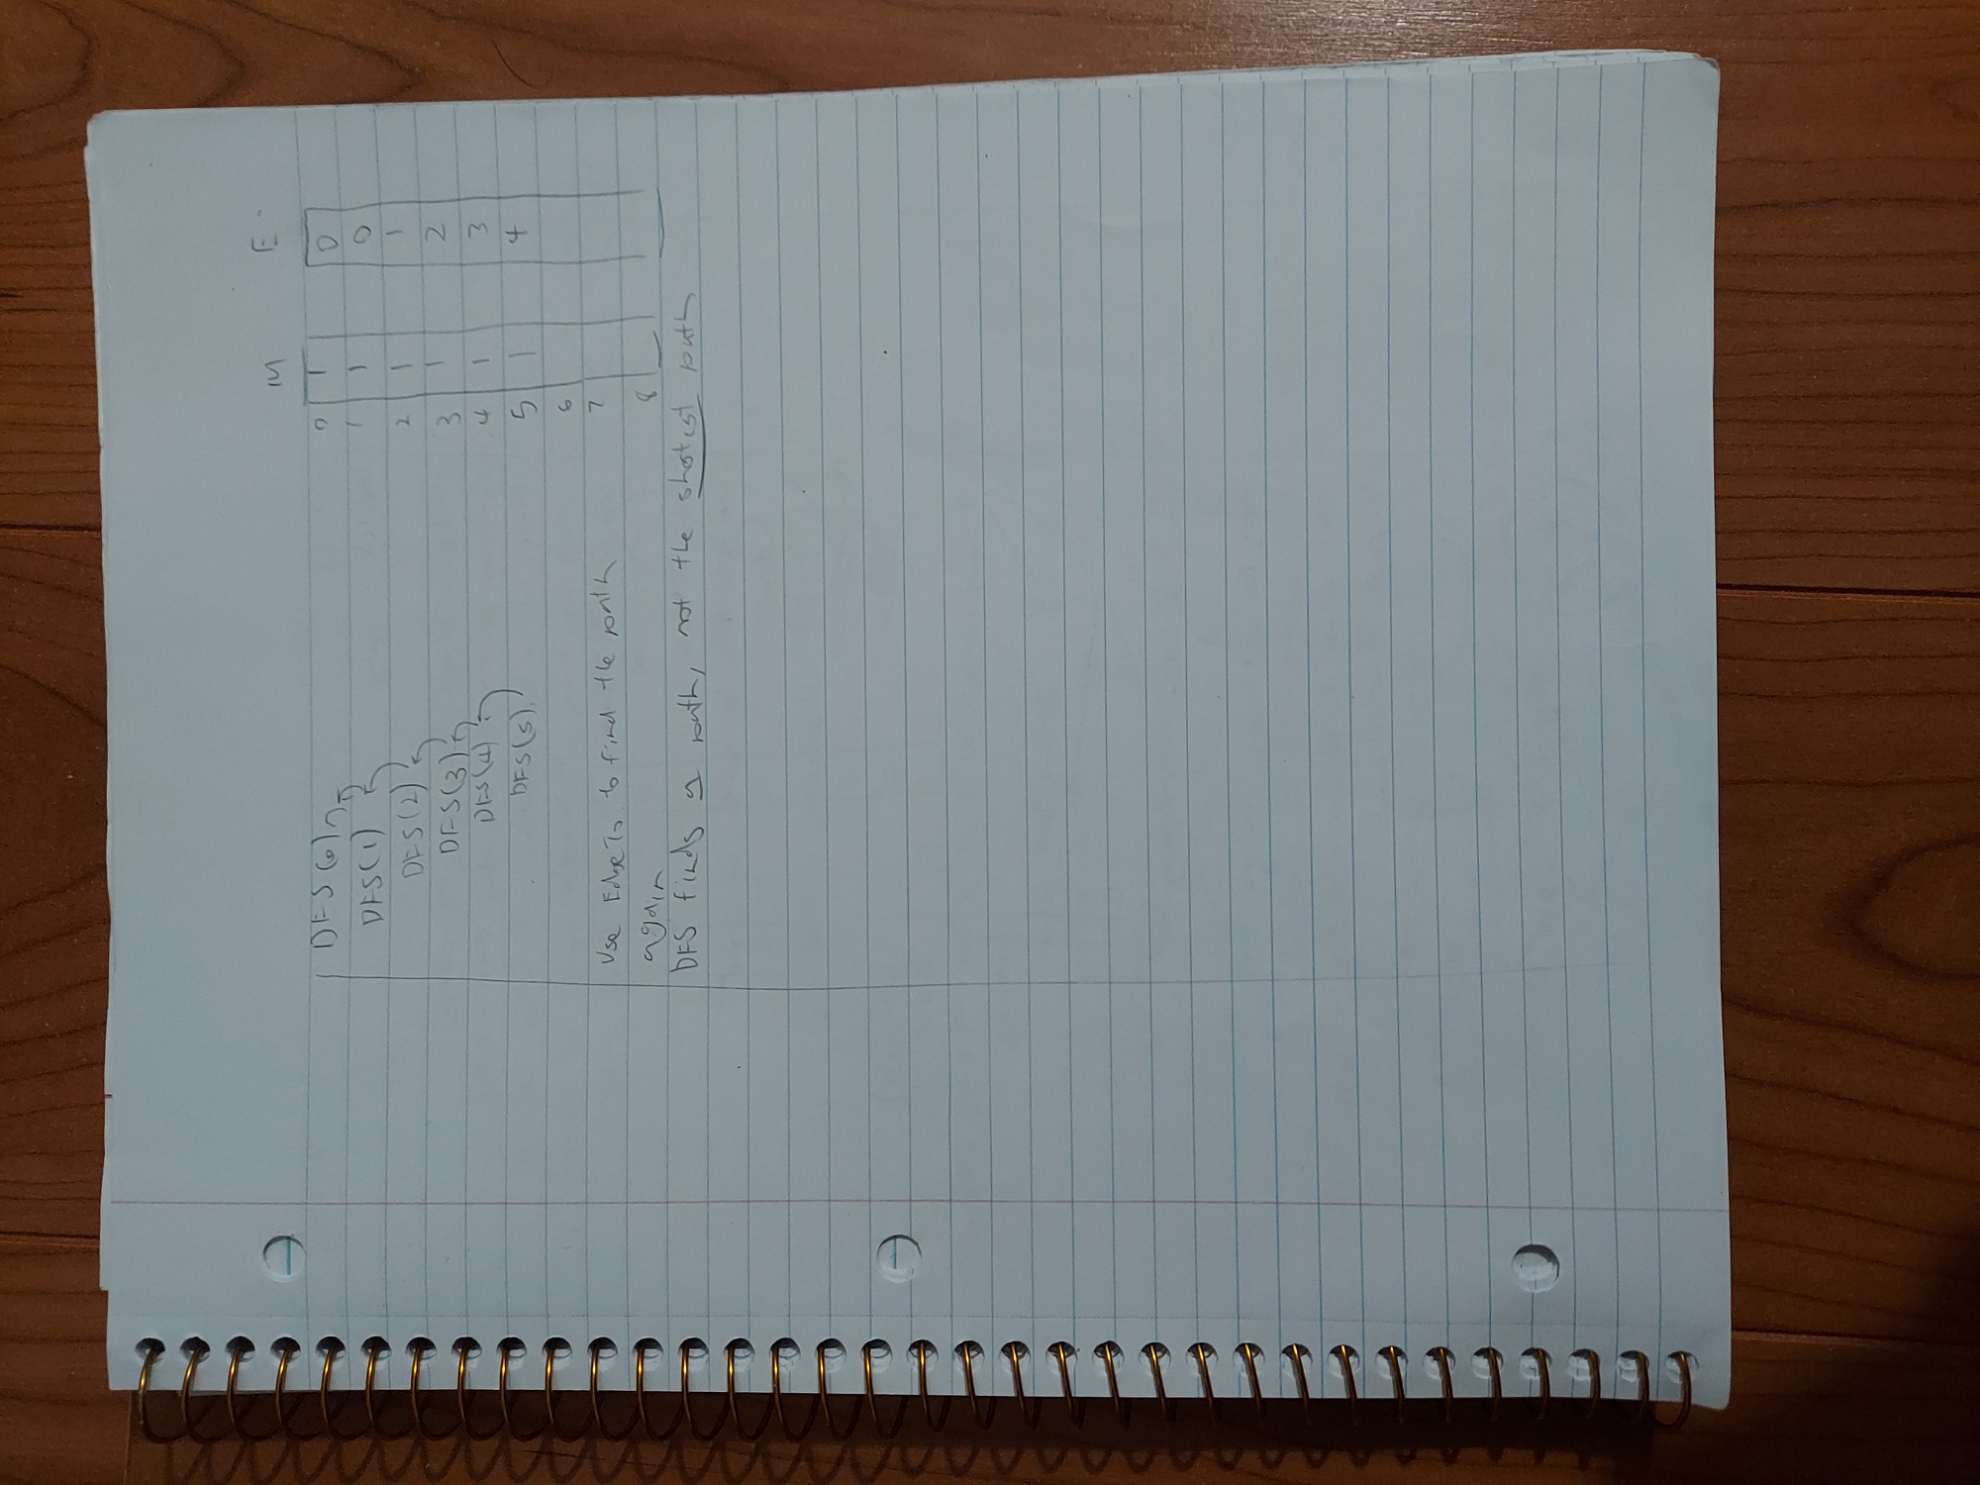 M E
DFS(0)
DFS(1)
DFS(2)
DFS(3)
DFS(4)
DFS(5)
0 1 0
1 1 0
2 1 1
3 1 2
4 1 3
5 1 4
6
7
8
Use EdgeTo to find the path
again
DFS finds a path, not the shotest path